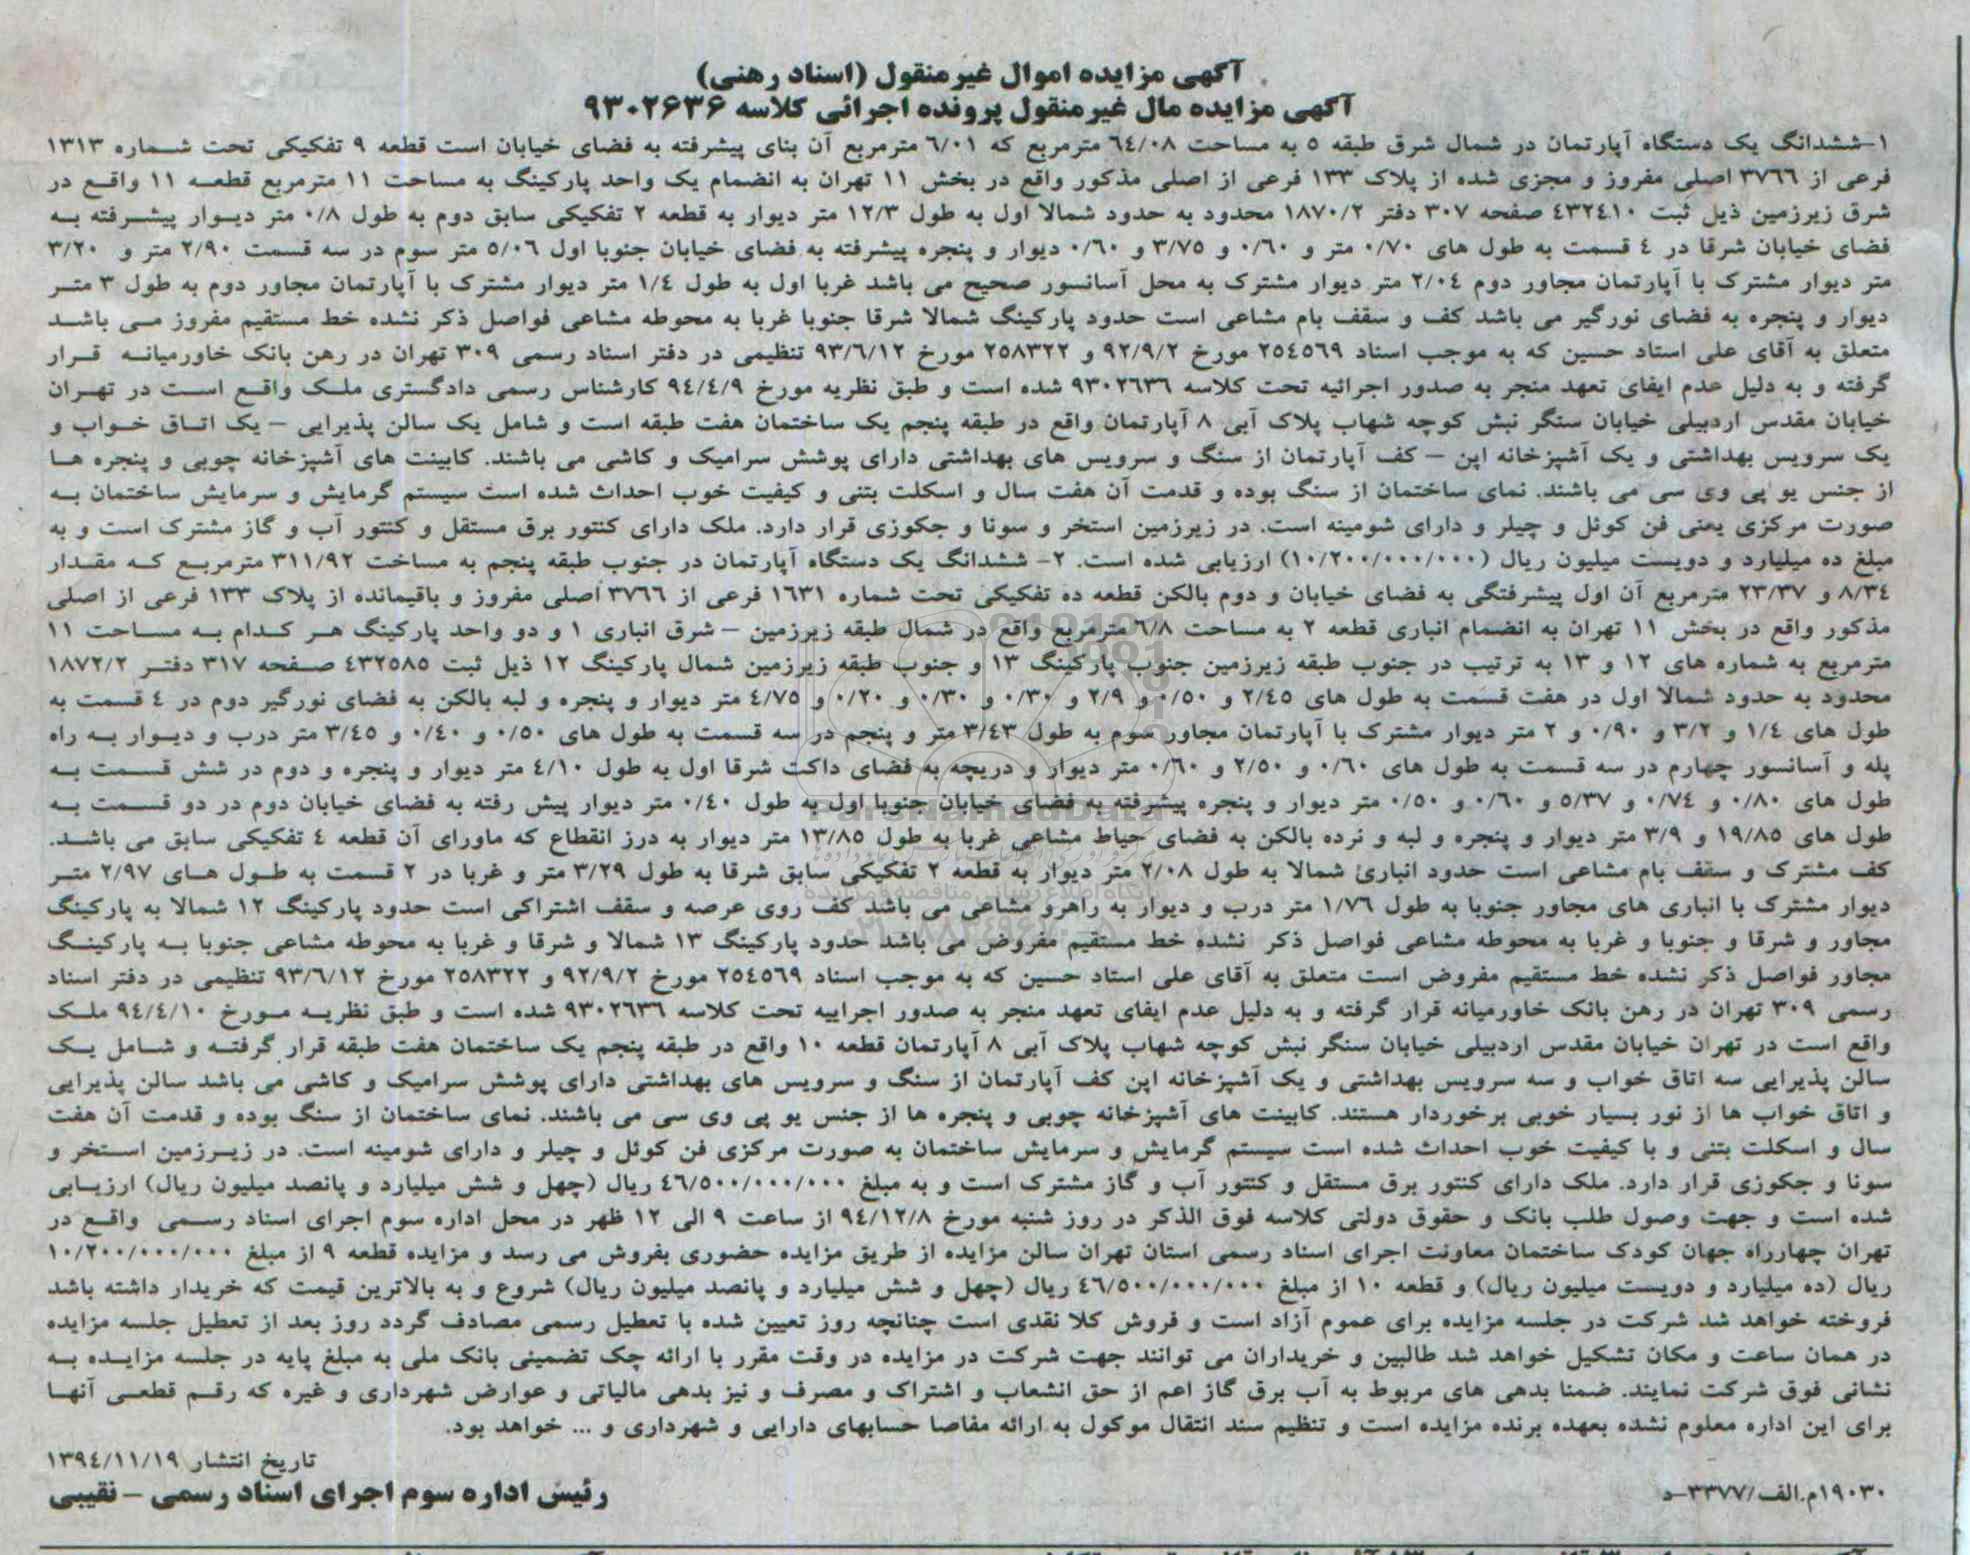 آگهی مزایده اموال غیرمنقول (اسناد رهنی)
آگهی مزایده مال غیرمنقول پرونده اجرائی کلاسه ۹۳۰۲۶۳۶
۱-ششدانگ یک دستگاه آپارتمان در شمال شرق طبقه ۵ به مساحت ۶۴/۰۸ مترمربع که ۶/۰۱ مترمربع آن بنای پیشرفته به فضای خیابان است قطعه ۹ تفکیکی تحت شماره ۱۳۱۳
فرعی از ۳۷۶۶ اصلی مفروز و مجزی شده از پلاک ۱۳۳ فرعی از اصلی مذکور واقع در بخش ۱۱ تهران به انضمام یک واحد پارکینگ به مساحت ۱۱ مترمربع قطعه ۱۱ واقع در
شرق زیرزمین ذیل ثبت ۴۳۲۴۱۰ صفحه ۳۰۷ دفتر ۱۸۷۰/۲ محدود به حدود شمالا اول به طول ۱۲/۳ متر دیوار به قطعه ۲ تفکیکی سابق دوم به طول ۰/۸ متر دیوار پیشرفته به
فضای خیابان شرقا در ۴ قسمت به طول های ۰/۷۰ متر و ۰/۶۰ و ۳/۷۵ و ۰/۶۰ دیوار و پنجره پیشرفته به فضای خیابان جنوبا اول ۵/۰۶ متر سوم در سه قسمت ۲/۹۰ متر و ۳/۲۰
متر دیوار مشترک با آپارتمان مجاور دوم ۲/۰۴ متر دیوار مشترک به محل آسانسور صحیح می باشد غربا اول به طول ۱/۴ متر دیوار مشترک با آپارتمان مجاور دوم به طول ۳ متر
دیوار و پنجره به فضای نورگیر می باشد کف و سقف بام مشاعی است حدود پارکینگ شمالا شرقا جنوبا غربا به محوطه مشاعی فواصل ذکر نشده خط مستقیم مفروز می باشد
متعلق به آقای علی استاد حسین که به موجب اسناد ۲۵۴۵۶۹ مورخ ۹۲/۹/۲ و ۲۵۸۳۲۲ مورخ ۹۳/۶/۱۲ تنظیمی در دفتر اسناد رسمی ۳۰۹ تهران در رهن بانک خاورمیانه قرار
گرفته و به دلیل عدم ایفای تعهد منجر به صدور اجرائیه تحت کلاسه ۹۳۰۲۶۳۶ شده است و طبق نظریه مورخ ۹۴/۴/۹ کارشناس رسمی دادگستری ملک واقع است در تهران
خیابان مقدس اردبیلی خیابان سنگر نبش کوچه شهاب پلاک آبی ۸ آپارتمان واقع در طبقه پنجم یک ساختمان هفت طبقه است و شامل یک سالن پذیرایی – یک اتاق خواب و
یک سرویس بهداشتی و یک آشپزخانه اپن – کف آپارتمان از سنگ و سرویس های بهداشتی دارای پوشش سرامیک و کاشی می باشند. کابینت های آشپزخانه چوبی و پنجره ها
از جنس یو پی وی سی می باشند. نمای ساختمان از سنگ بوده و قدمت آن هفت سال و اسکلت بتنی و کیفیت خوب احداث شده است سیستم گرمایش و سرمایش ساختمان به
صورت مرکزی یعنی فن کوئل و چیلر و دارای شومینه است. در زیرزمین استخر و سونا و جکوزی قرار دارد. ملک دارای کنتور برق مستقل و کنتور آب و گاز مشترک است و به
مبلغ ده میلیارد و دویست میلیون ریال (۱۰/۲۰۰/۰۰۰/۰۰۰) ارزیابی شده است. ۲- ششدانگ یک دستگاه آپارتمان در جنوب طبقه پنجم به مساخت ۳۱۱/۹۲ مترمربع که مقدار
۸/۳۴ و ۲۳/۳۷ مترمربع آن اول پیشرفتگی به فضای خیابان و دوم بالکن قطعه ده تفکیکی تحت شماره ۱۶۳۱ فرعی از ۳۷۶۶ اصلی مفروز و باقیمانده از پلاک ۱۳۳ فرعی از اصلی
مذکور واقع در بخش ۱۱ تهران به انضمام انباری قطعه ۲ به مساحت ۶/۸ مترمربع واقع در شمال طبقه زیرزمین – شرق انباری ۱ و دو واحد پارکینگ هر کدام به مساحت ۱۱
مترمربع به شماره های ۱۲ و ۱۳ به ترتیب در جنوب طبقه زیرزمین جنوب پارکینگ ۱۳ و جنوب طبقه زیرزمین شمال پارکینگ ۱۲ ذیل ثبت ۴۳۲۵۸۵ صفحه ۳۱۷ دفتر ۱۸۷۲/۲
محدود به حدود شمالا اول در هفت قسمت به طول های ۲/۴۵ و ۰/۵۰ و ۲/۹ و ۰/۳۰ و ۰/۳۰ و ۰/۲۰ و ۴/۷۵ متر دیوار و پنجره و لبه بالکن به فضای نورگیر دوم در ۴ قسمت به
طول های ۱/۴ و ۳/۲ و ۰/۹۰ و ۲ متر دیوار مشترک با آپارتمان مجاور سوم به طول ۳/۴۳ متر و پنجم در سه قسمت به طول های ۰/۵۰ و ۰/۴۰ و ۳/۴۵ متر درب و دیوار به راه
پله و آسانسور چهارم در سه قسمت به طول های ۰/۶۰ و ۲/۵۰ و ۰/۶۰ متر دیوار و دریچه به فضای داکت شرقا اول به طول ۴/۱۰ متر دیوار و پنجره و دوم در شش قسمت به
طول های ۰/۸۰ و ۰/۷۴ و ۵/۳۷ و ۰/۶۰ و ۰/۵۰ متر دیوار و پنجره پیشرفته به فضای خیابان جنوبا اول به طول ۰/۴۰ متر دیوار پیش رفته به فضای خیابان دوم در دو قسمت به
طول های ۱۹/۸۵ و ۳/۹ متر دیوار و پنجره و لبه و نرده بالکن به فضای حیاط مشاعی غربا به طول ۱۳/۸۵ متر دیوار به درز انقطاع که ماورای آن قطعه ۴ تفکیکی سابق می باشد.
کف مشترک و سقف بام مشاعی است حدود انباری شمالا به طول ۲/۰۸ متر دیوار به قطعه ۲ تفکیکی سابق شرقا به طول ۳/۲۹ متر و غربا در ۲ قسمت به طول های ۲/۹۷ متر
دیوار مشترک با انباری های مجاور جنوبا به طول ۱/۷۶ متر درب و دیوار به راهرو مشاعی می باشد کف روی عرصه و سقف اشتراکی است حدود پارکینگ ۱۲ شمالا به پارکینگ
مجاور و شرقا و جنوبا و غربا به محوطه مشاعی فواصل ذکر نشده خط مستقیم مفروض می باشد حدود پارکینگ ۱۳ شمالا و شرقا و غربا به محوطه مشاعی جنوبا به پارکینگ
مجاور فواصل ذکر نشده خط مستقیم مفروض است متعلق به آقای علی استاد حسین که به موجب اسناد ۲۵۴۵۶۹ مورخ ۹۲/۹/۲ و ۲۵۸۳۲۲ مورخ ۹۳/۶/۱۲ تنظیمی در دفتر اسناد
رسمی ۳۰۹ تهران در رهن بانک خاورمیانه قرار گرفته و به دلیل عدم ایفای تعهد منجر به صدور اجراییه تحت کلاسه ۹۳۰۲۶۳۶ شده است و طبق نظریه مورخ ۹۴/۴/۱۰ ملک
واقع است در تهران خیابان مقدس اردبیلی خیابان سنگر نبش کوچه شهاب پلاک آبی ۸ آپارتمان قطعه ۱۰ واقع در طبقه پنجم یک ساختمان هفت طبقه قرار گرفته و شامل یک
سالن پذیرایی سه اتاق خواب و سه سرویس بهداشتی و یک آشپزخانه اپن کف آپارتمان از سنگ و سرویس های بهداشتی دارای پوشش سرامیک و کاشی می باشد سالن پذیرایی
و اتاق خواب ها از نور بسیار خوبی برخوردار هستند. کابینت های آشپزخانه چوبی و پنجره ها از جنس یو پی وی سی می باشند. نمای ساختمان از سنگ بوده و قدمت آن هفت
سال و اسکلت بتنی و با کیفیت خوب احداث شده است سیستم گرمایش و سرمایش ساختمان به صورت مرکزی فن کوئل و چیلر و دارای شومینه است. در زیرزمین استخر و
سونا و جکوزی قرار دارد. ملک دارای کنتور برق مستقل و کنتور آب و گاز مشترک است و به مبلغ ۴۶/۵۰۰/۰۰۰/۰۰۰ ریال (چهل و شش میلیارد و پانصد میلیون ریال) ارزیابی
شده است و جهت وصول طلب بانک و حقوق دولتی کلاسه فوق الذکر در روز شنبه مورخ ۹۴/۱۲/۸ از ساعت ۹ الی ۱۲ ظهر در محل اداره سوم اجرای اسناد رسمی واقع در
تهران چهارراه جهان کودک ساختمان معاونت اجرای اسناد رسمی استان تهران سالن مزایده از طریق مزایده حضوری بفروش می رسد و مزایده قطعه ۹ از مبلغ ۱۰/۲۰۰/۰۰۰/۰۰۰
ریال (ده میلیارد و دویست میلیون ریال) و قطعه ۱۰ از مبلغ ۴۶/۵۰۰/۰۰۰/۰۰۰ ریال (چهل و شش میلیارد و پانصد میلیون ریال) شروع و به بالاترین قیمت که خریدار داشته باشد
فروخته خواهد شد شرکت در جلسه مزایده برای عموم آزاد است و فروش کلا نقدی است چنانچه روز تعیین شده با تعطیل رسمی مصادف گردد روز بعد از تعطیل جلسه مزایده
در همان ساعت و مکان تشکیل خواهد شد طالبین و خریداران می توانند جهت شرکت در مزایده در وقت مقرر با ارائه چک تضمینی بانک ملی به مبلغ پایه در جلسه مزایده به
نشانی فوق شرکت نمایند. ضمنا بدهی های مربوط به آب برق گاز اعم از حق انشعاب و اشتراک و مصرف و نیز بدهی مالیاتی و عوارض شهرداری و غیره که رقم قطعی آنها
برای این اداره معلوم نشده بعهده برنده مزایده است و تنظیم سند انتقال موکول به ارائه مفاصا حسابهای دارایی و شهرداری و ... خواهد بود.
تاریخ انتشار ۱۳۹۴/۱۱/۱۹
۱۹۰۳۰م.الف/۳۳۷۷-د
رئیس اداره سوم اجرای اسناد رسمی – نقیبی
ParsNamadData